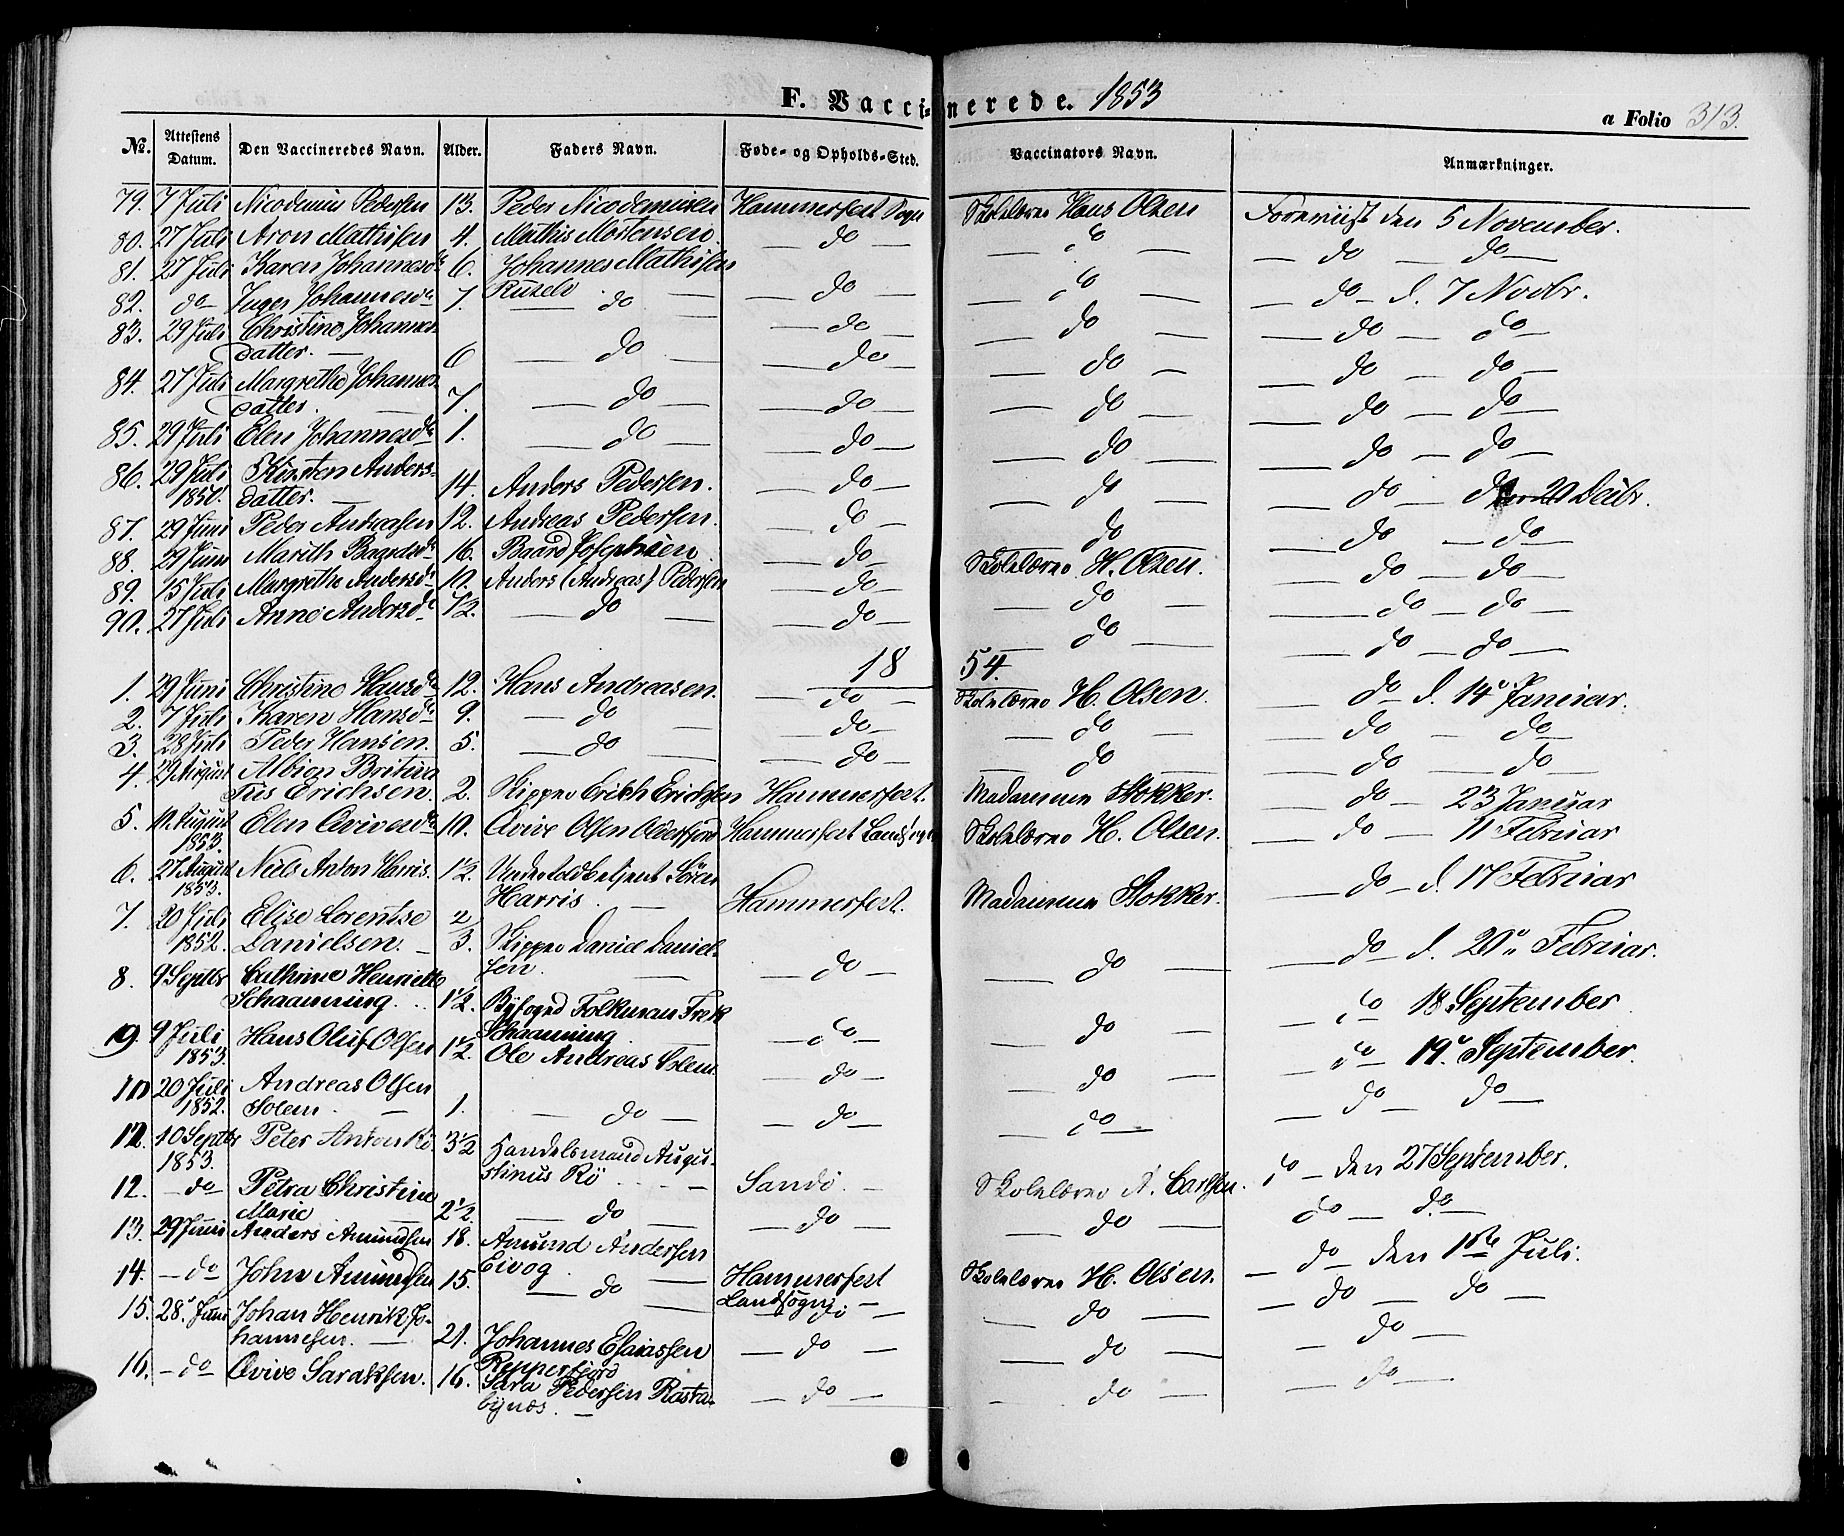 F. Vaccinerede. 1853
a Folio 313.
No. Attestens Datum. Den Vaccineredes Navn. Alder. Faders Navn. Føde- og Opholds-Sted. Vaccinators Navn. Anmærkninger.
79. 7 Juli Nicodemus Pedersen 13. Peder Nicodemusen Hammerfest Sogn Skolelærer Hans Olsen Foreviist den 5 November.
80. 27 Juli Aron Mathisen 4. Mathis Mortensen. — do — — do — — do — do —
81. 27 Juli Karen Johannesd. 6. Johannes Mathisen — do — — do — — do — d. 7 Novbr.
82. do Inger Johannesd. 7. — do — — do — — do — — do — do —
83. 29 Juli Christine Johannes
datter. — 6 — do — — do — — do — — do — do —
84. 27 Juli Margrethe Johannes
datter. — 7. — do — — do — — do — — do — do —
85. 29 Juli Elen Johannesd. 1. — do — — do — — do — — do — do —
86. 29 Juli Kirsten Anders-
1850. datter. — 14. Anders Pedersen. — do — — do — — do — 20 Decbr.
87. 29 Juni Peder Andreasen 12. Andreas Pedersen. — do — do — do — do —
88. 29 Juni Marith 16. Baard Josephsen. — do — Skolelærer H. Olsen. — do — do —
89. 15 Juli Margrethe Andersd. 10. Anders (Andreas) Pedersen — do — — do — — do — do —
90. 27 Juli Anne Andersd. 12. — do — — do — — do — — do — do —
18 54.
1. 29 Juni Christine Hansd. 12. Hans Andreasen. — do — Skolelærer H. Olsen. — do — d. 14 Januar.
2. 7 Juli Karen Hansd. 9. — do — — do — — do — — do — do —
3. 28 Juli Peder Hansen. 5. — do — — do — — do — — do — do —
4. 29 August Albion
Erichsen. 2. Skipper Erich Erichsen Hammerfest. Madammen Stokker. — do — 23 Januar
5. 12 August Elen 10. Olsen Hammerfest Landsogn Skolelærer H. Olsen. — do — 11 Februar
1853.
6. 27 August Niels Anton Harris. 1½. Undertoldbetjent Sören
1853. Harris. — Hammerfest. Madammen Stokker. — do — d. 17 Februar
7. 20 Juli Elise Lorentse 2/3.
1852. Danielsen. — Skipper Daniel Daniel-
sen. — — do — — do — — do — d. 20 Februar.
8. 9 Septbr Cathrine Henriette
Schaanning. 1½. Byfoged Folkman Fredk
Schaanning — do — — do — — do 18 September
9. 9 Juli Hans Oluf Olsen 1½. Ole Andreas Solem. — do — — do — — do — 19 September.
1853.
10 20 Juli Andreas Olsen
1852. Solem. — 1. — do — — do — — do — — do — do —
12. 10 Septbr Peter Anton Rö 3½ Handelsmand Augus-
1853. stinus Rö — Sandö. — Skolelærer A. Carlsen. do — den 27 September.
12. — do Petra Christine
Marie — 2½. — do — — do — — do — do — do —
13. 29 Juni Anders Amundsen 18. Amund Andersen
Eivog. — Hammerfest
Landsogn — Skolelærer H. Olsen. — do — den 1ste Juli.
14. — do John Amundsen 15. — do — — do — — do — — do — do —
15. 28. Juni Johan Henrik Jo-
hannesen. — 21. Johannes Esaiassen
Repperfjord — do — — do — — do —
16. — do 16. Sara Pedersen
— do — — do — — do —